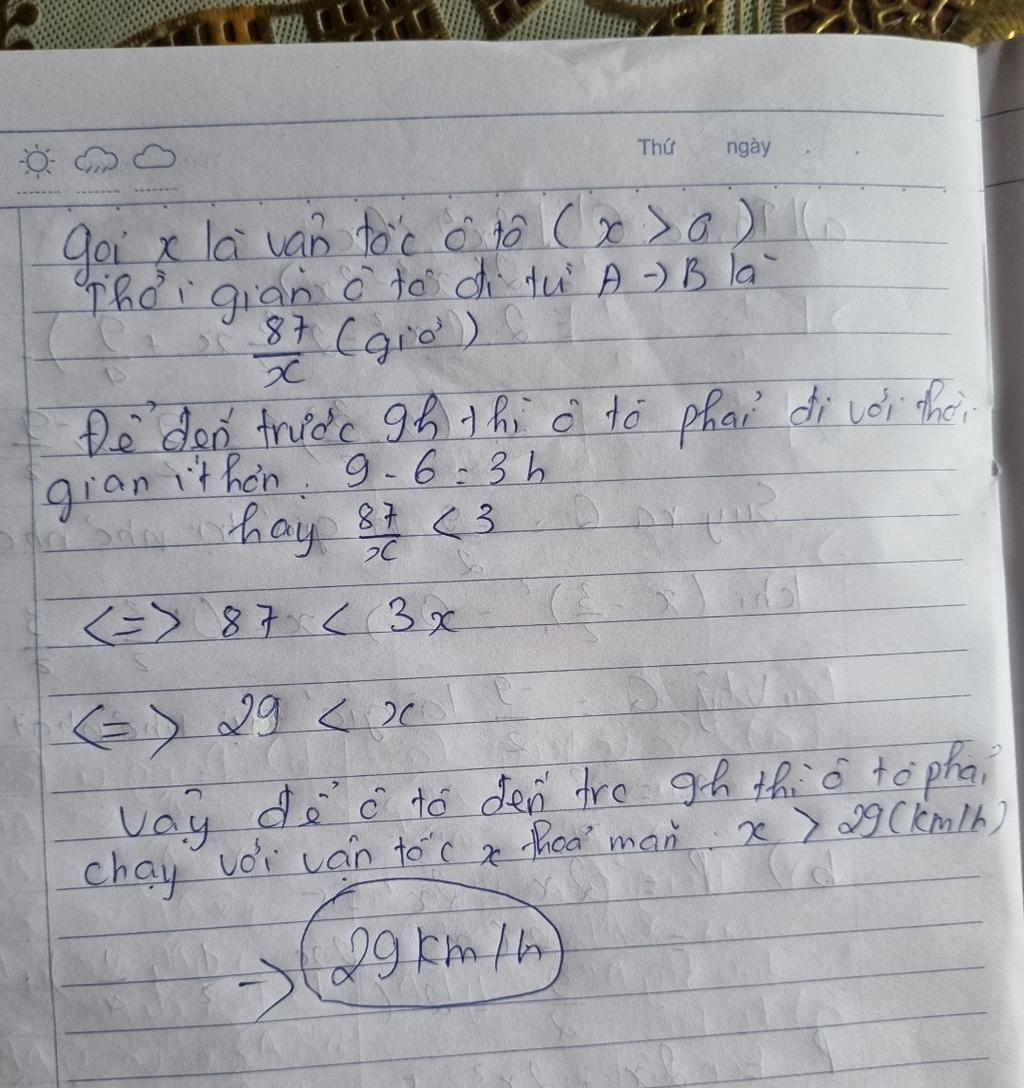 Thứ ngày
gọi x là vận tốc ô tô ( x > 0 )
Thời gian ô tô đi từ A -> B là
87/x (giờ)
Để đến trước 9h thì ô tô phải đi với thời
gian ít hơn. 9 - 6 = 3 h
hay 87/x < 3
<=> 87 < 3x
<=> 29 < x
Vậy để ô tô đến trc 9h thì ô tô phải
chạy với vận tốc x thoả mãn. x > 29 (km/h)
-> 29 km/h